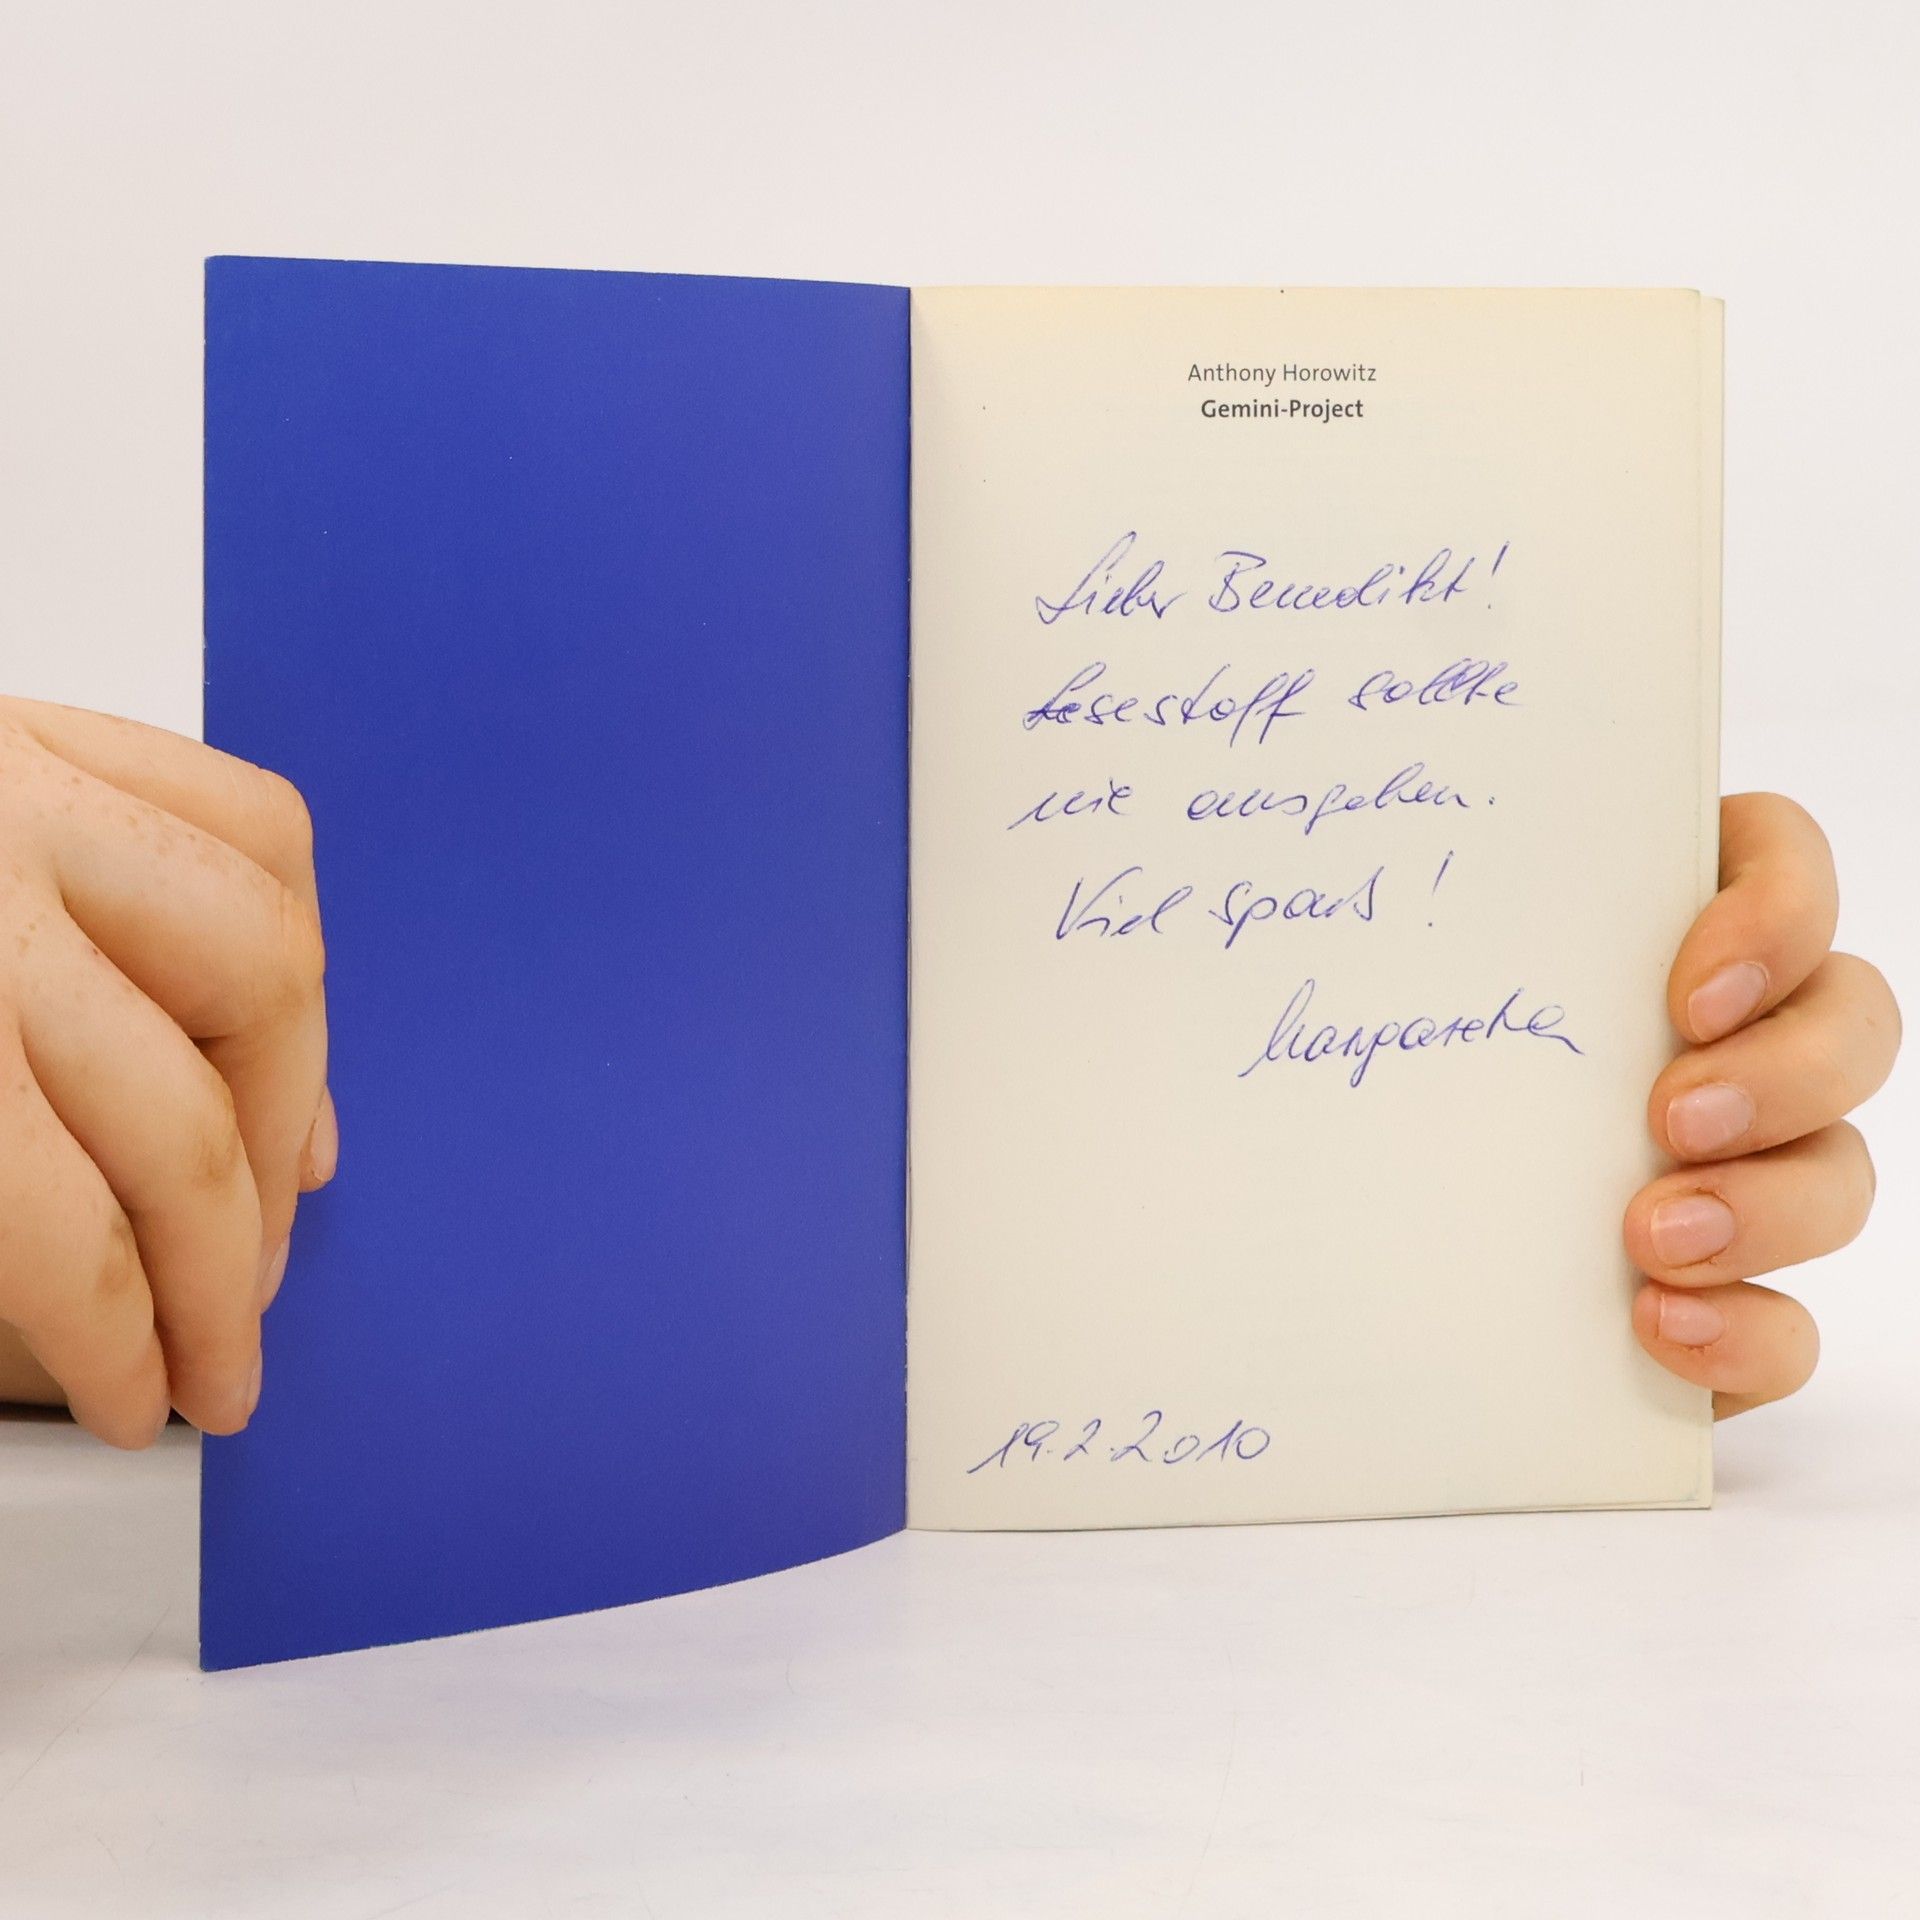 Anthony Horowitz
Gemini-Project
Lieber Benedikt!
Lesestoff sollte
nie ausgehen.
Viel Spaß!
Margaretha
19.2.2010